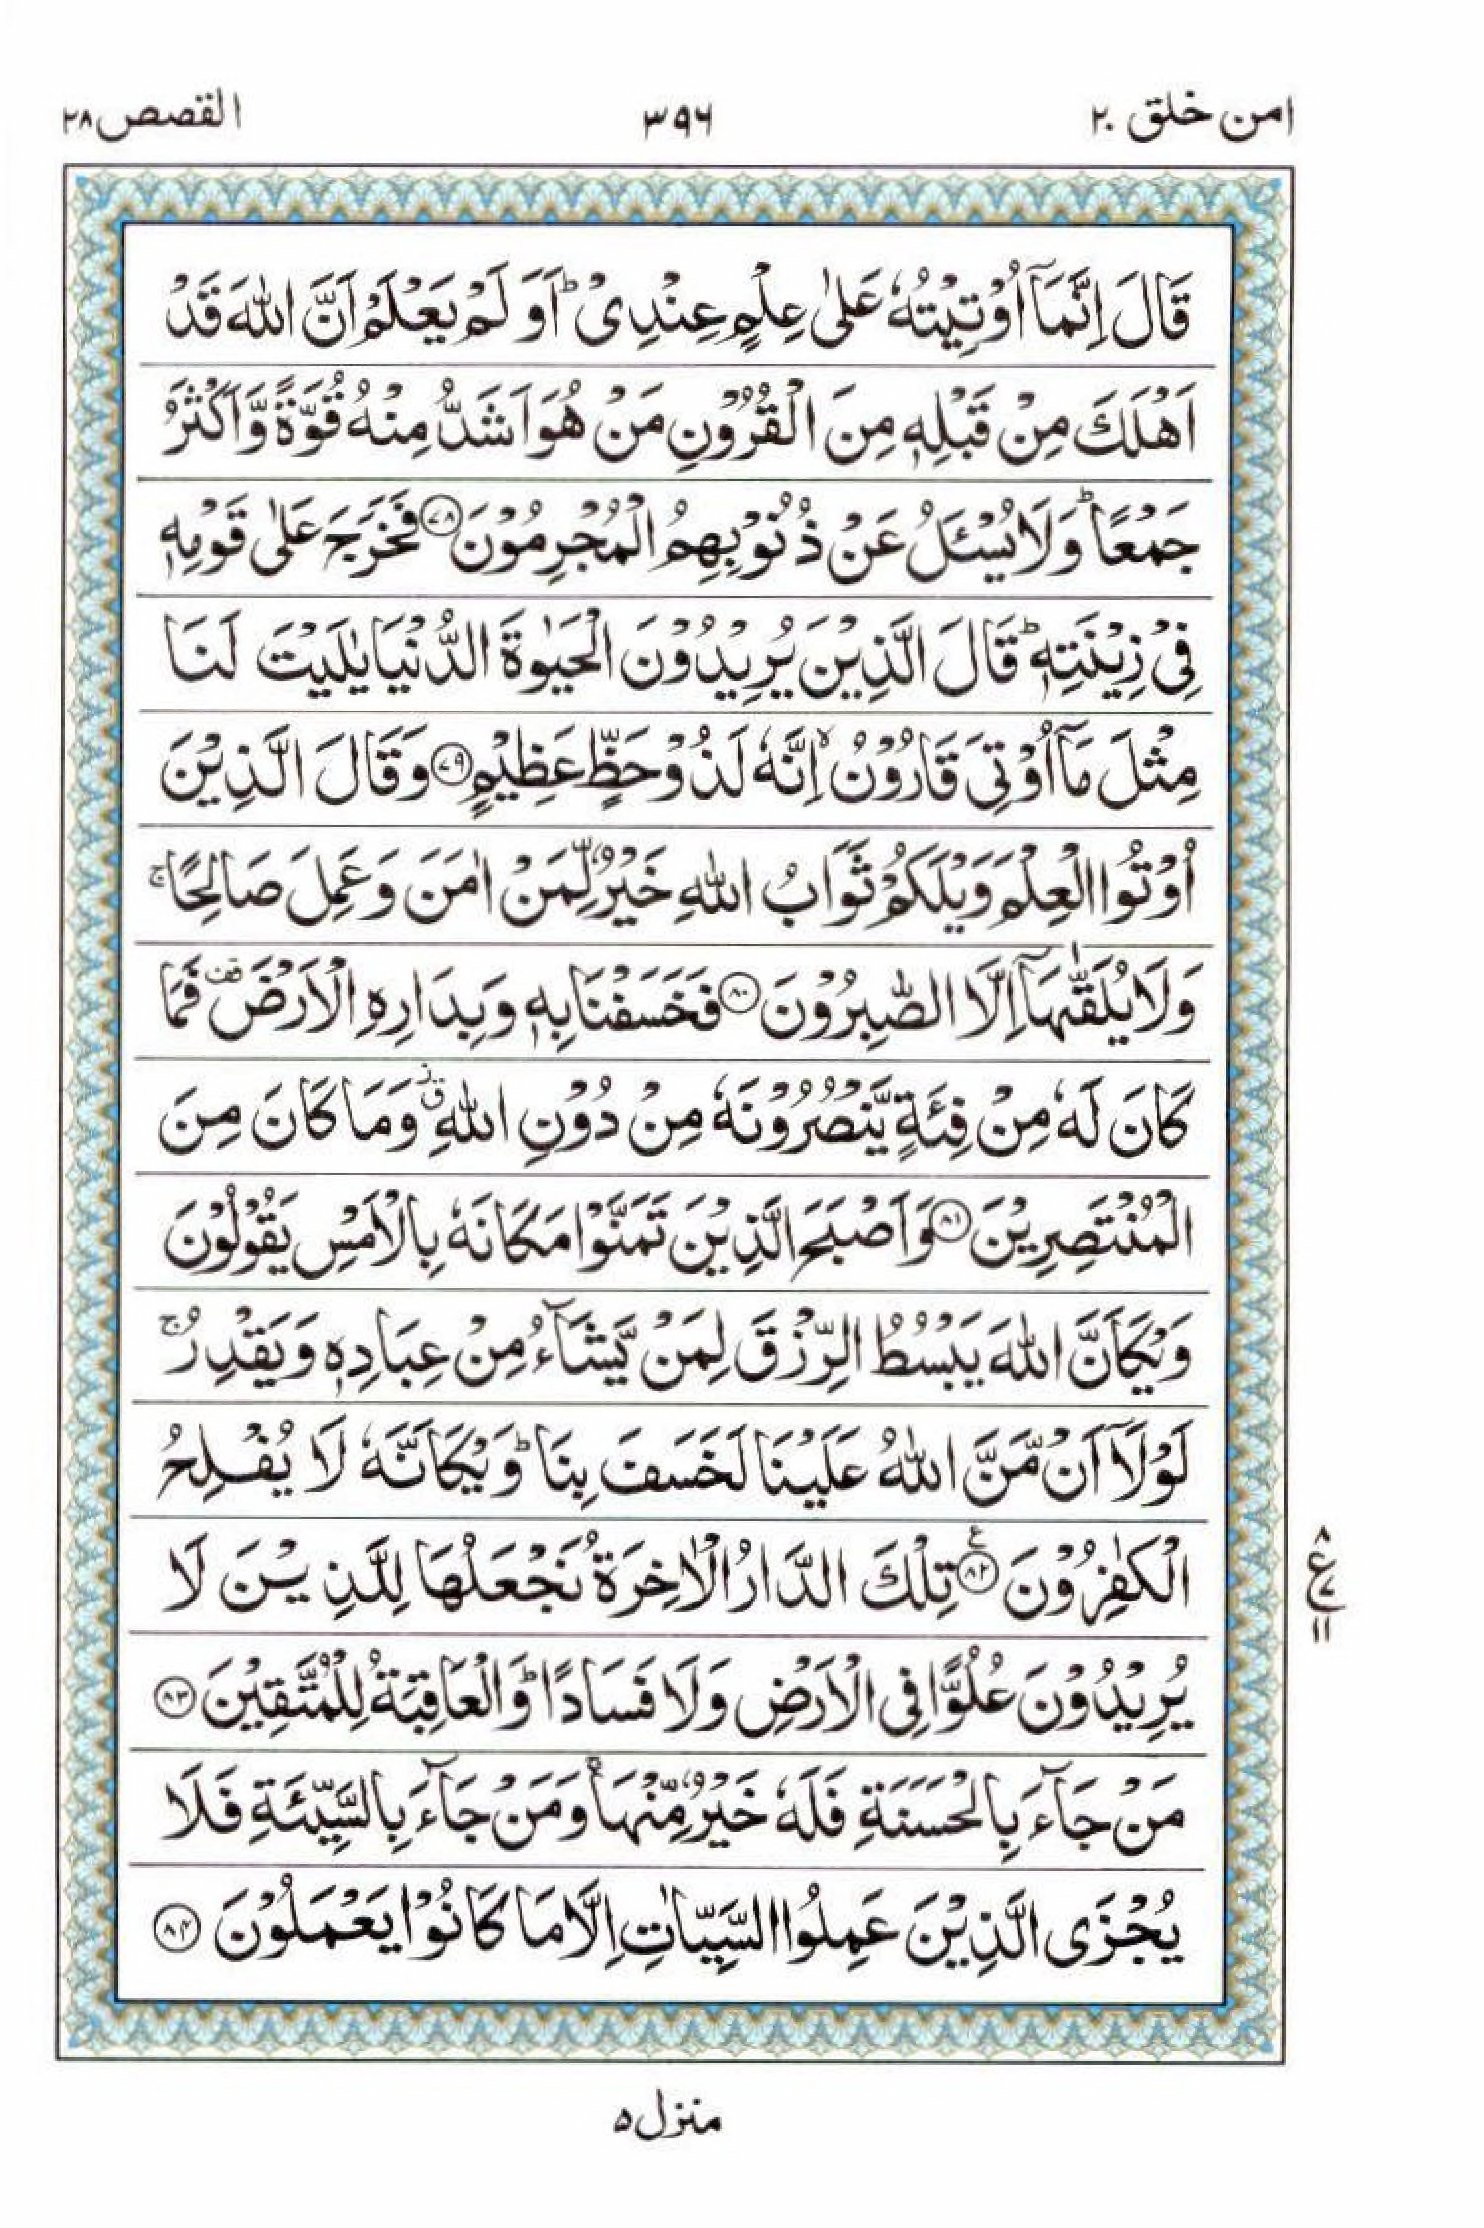 امن خلق ۲۰ ۳۹۶ القصص ۲۸
قَالَ اِنَّمَاۤ اُوْتِیْتُهٗ عَلٰی عِلْمٍ عِنْدِیْ ؕ اَوَ لَمْ یَعْلَمْ اَنَّ اللّٰهَ قَدْ
اَهْلَكَ مِنْ قَبْلِهٖ مِنَ الْقُرُوْنِ مَنْ هُوَ اَشَدُّ مِنْهُ قُوَّةً وَّ اَكْثَرُ
جَمْعًا ؕ وَلَا یُسْـَٔلُ عَنْ ذُنُوْبِهِمُ الْمُجْرِمُوْنَ ﴿۷۸﴾ فَخَرَجَ عَلٰی قَوْمِهٖ
فِیْ زِیْنَتِهٖ ؕ قَالَ الَّذِیْنَ یُرِیْدُوْنَ الْحَیٰوةَ الدُّنْیَا یٰلَیْتَ لَنَا
مِثْلَ مَاۤ اُوْتِیَ قَارُوْنُ ۙ اِنَّهٗ لَذُوْ حَظٍّ عَظِیْمٍ ﴿۷۹﴾ وَقَالَ الَّذِیْنَ
اُوْتُوا الْعِلْمَ وَیْلَكُمْ ثَوَابُ اللّٰهِ خَیْرٌ لِّمَنْ اٰمَنَ وَعَمِلَ صَالِحًا ۚ
وَلَا یُلَقّٰىهَاۤ اِلَّا الصّٰبِرُوْنَ ﴿۸۰﴾ فَخَسَفْنَا بِهٖ وَبِدَارِهِ الْاَرْضَ ۫ فَمَا
كَانَ لَهٗ مِنْ فِئَةٍ یَّنْصُرُوْنَهٗ مِنْ دُوْنِ اللّٰهِ ۗ وَمَا كَانَ مِنَ
الْمُنْتَصِرِیْنَ ﴿۸۱﴾ وَاَصْبَحَ الَّذِیْنَ تَمَنَّوْا مَكَانَهٗ بِالْاَمْسِ یَقُوْلُوْنَ
وَیْكَاَنَّ اللّٰهَ یَبْسُطُ الرِّزْقَ لِمَنْ یَّشَآءُ مِنْ عِبَادِهٖ وَیَقْدِرُ ۚ
لَوْلَاۤ اَنْ مَّنَّ اللّٰهُ عَلَیْنَا لَخَسَفَ بِنَا ؕ وَیْكَاَنَّهٗ لَا یُفْلِحُ
الْكٰفِرُوْنَ ﴿۸۲﴾ ع تِلْكَ الدَّارُ الْاٰخِرَةُ نَجْعَلُهَا لِلَّذِیْنَ لَا
۸ ع ۷ ۱۱
یُرِیْدُوْنَ عُلُوًّا فِی الْاَرْضِ وَلَا فَسَادًا ؕ وَالْعَاقِبَةُ لِلْمُتَّقِیْنَ ﴿۸۳﴾
مَنْ جَآءَ بِالْحَسَنَةِ فَلَهٗ خَیْرٌ مِّنْهَا ۚ وَمَنْ جَآءَ بِالسَّیِّئَةِ فَلَا
یُجْزَی الَّذِیْنَ عَمِلُوا السَّیِّاٰتِ اِلَّا مَا كَانُوْا یَعْمَلُوْنَ ﴿۸۴﴾
منزل ۵